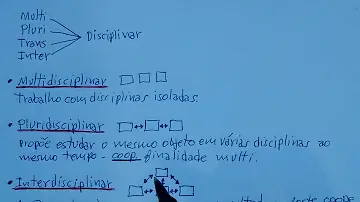 Multi
Pluri
Trans
Inter
Disciplinar
• Multidisciplinar
Trabalho com disciplinas isoladas.
• Pluridisciplinar
Propõe estudar o mesmo objeto em várias disciplinas ao
mesmo tempo - coop. finalidade multi.
• Interdisciplinar